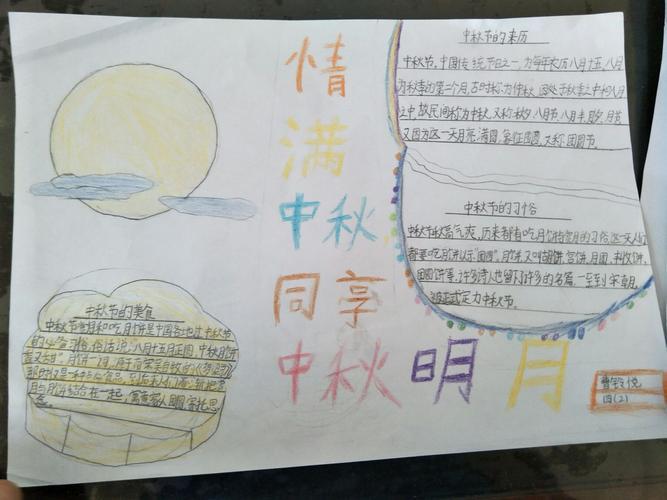 情
满
中秋
同享
中秋明月
中秋节的来历
中秋节,中国传统节日之一,为每年农历八月十五,八月
为秋季的第二个月,古时称为仲秋,因处于秋季之中和八月
之中,故民间称为中秋,又称秋夕,八月节,八月半,
又因为这一天月亮满圆,象征团圆,又称团圆节。
中秋节的习俗
中秋节秋高气爽,历来都有吃月饼赏月的习俗,这一天人们
都要吃月饼以示“团圆”。月饼,又叫胡饼,宫饼,月团,
团圆饼等,许多诗人也留下许多的名篇,一至到宋朝,
被正式定为中秋节。
中秋节的美食
中秋节赏月和吃月饼是中国各地过中秋节
的必备习俗,俗话说:“八月十五月正圆,中秋月饼
香又甜”。月饼一词,
那时
月与月饼结合在一起,寓意家人团圆,寄托思
念。
曹
悦
四(2)